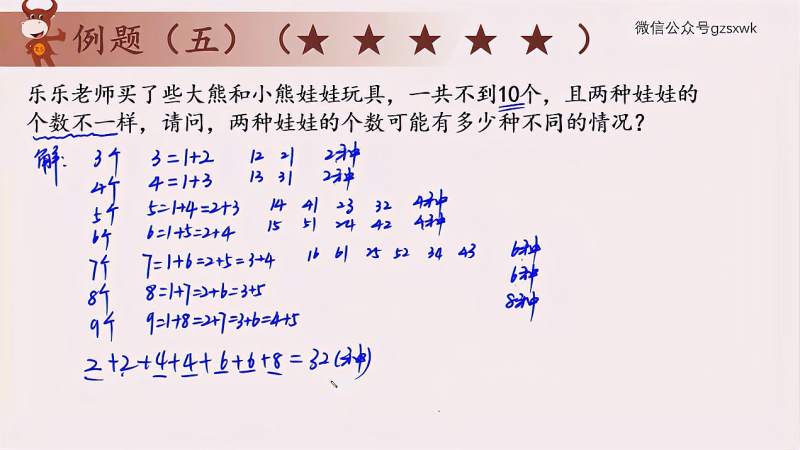 微信公众号gzsxwk
例题（五）（★★★★★）
乐乐老师买了些大熊和小熊娃娃玩具，一共不到10个，且两种娃娃的
个数不一样，请问，两种娃娃的个数可能有多少种不同的情况？
解：3个 3=1+2 12 21 2种
4个 4=1+3 13 31 2种
5个 5=1+4=2+3 14 41 23 32 4种
6个 6=1+5=2+4 15 51 24 42 4种
7个 7=1+6=2+5=3+4 16 61 25 52 34 43 6种
8个 8=1+7=2+6=3+5 6种
9个 9=1+8=2+7=3+6=4+5 8种
2+2+4+4+6+6+8=32(种)